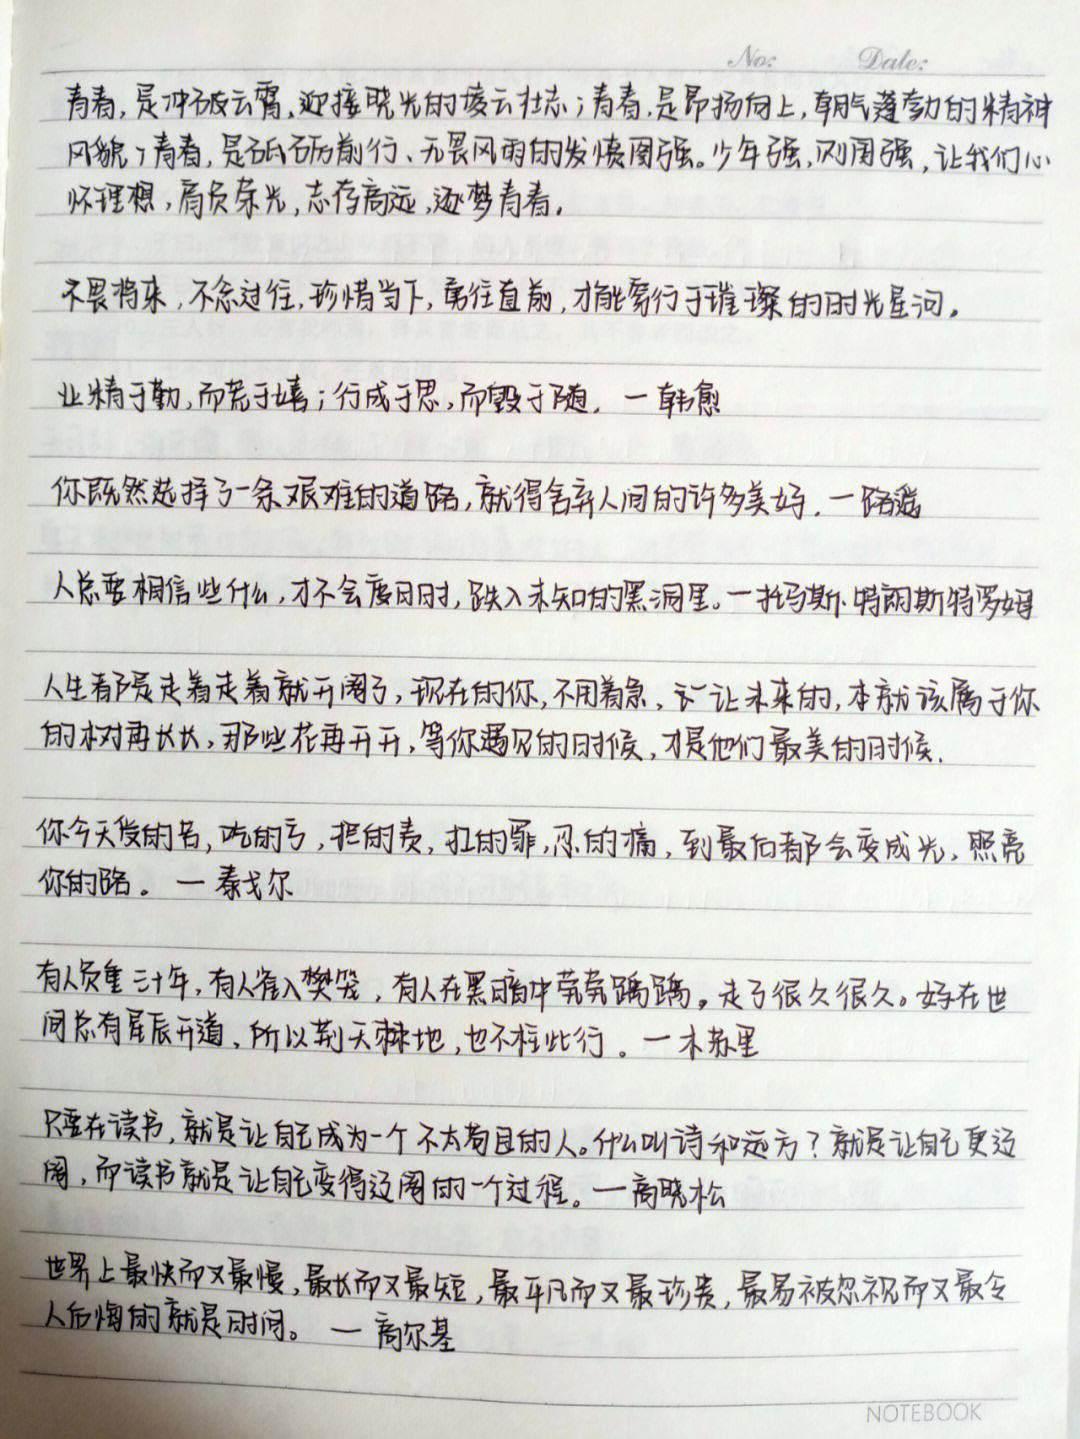 No: Date:
青春，是冲破云霄、迎接晓光的凌云壮志；青春，是昂扬向上，朝气蓬勃的精神
风貌；青春，是砥砺前行、无畏风雨的发愤图强。少年强，则国强，让我们心
怀理想，肩负荣光，志存高远，逐梦青春.
不畏将来，不念过往，珍惜当下，勇往直前，才能穿行于璀璨的时光星河。
业精于勤，而荒于嬉；行成于思，而毁于随. 一韩愈
你既然选择了一条艰难的道路，就得舍弃人间的许多美好. 一路遥
人总要相信些什么，才不会度日时，跌入未知的黑洞里。一托马斯·特朗斯特罗姆
人生都是走着走着就开阔了，现在的你，不用着急，让未来的，本就该属于你
的树再长长，那些花再开开，等你遇见的时候，才是他们最美的时候.
你今天受的苦，吃的亏，担的责，扛的罪，忍的痛，到最后都会变成光，照亮
你的路。 一泰戈尔
有人负重三十年，有人雀入樊笼，有人在黑暗中茕茕踽踽。走了很久很久。好在世
间总有星辰开道，所以荆天棘地，也不枉此行。 一木苏里
只要在读书，就是让自己成为一个不太苟且的人。什么叫诗和远方？就是让自己更辽
阔，而读书就是让自己变得辽阔的一个过程。一高晓松
世界上最快而又最慢，最长而又最短，最平凡而又最珍贵，最易被忽视而又最令
人后悔的就是时间。 一 高尔基
NOTEBOOK